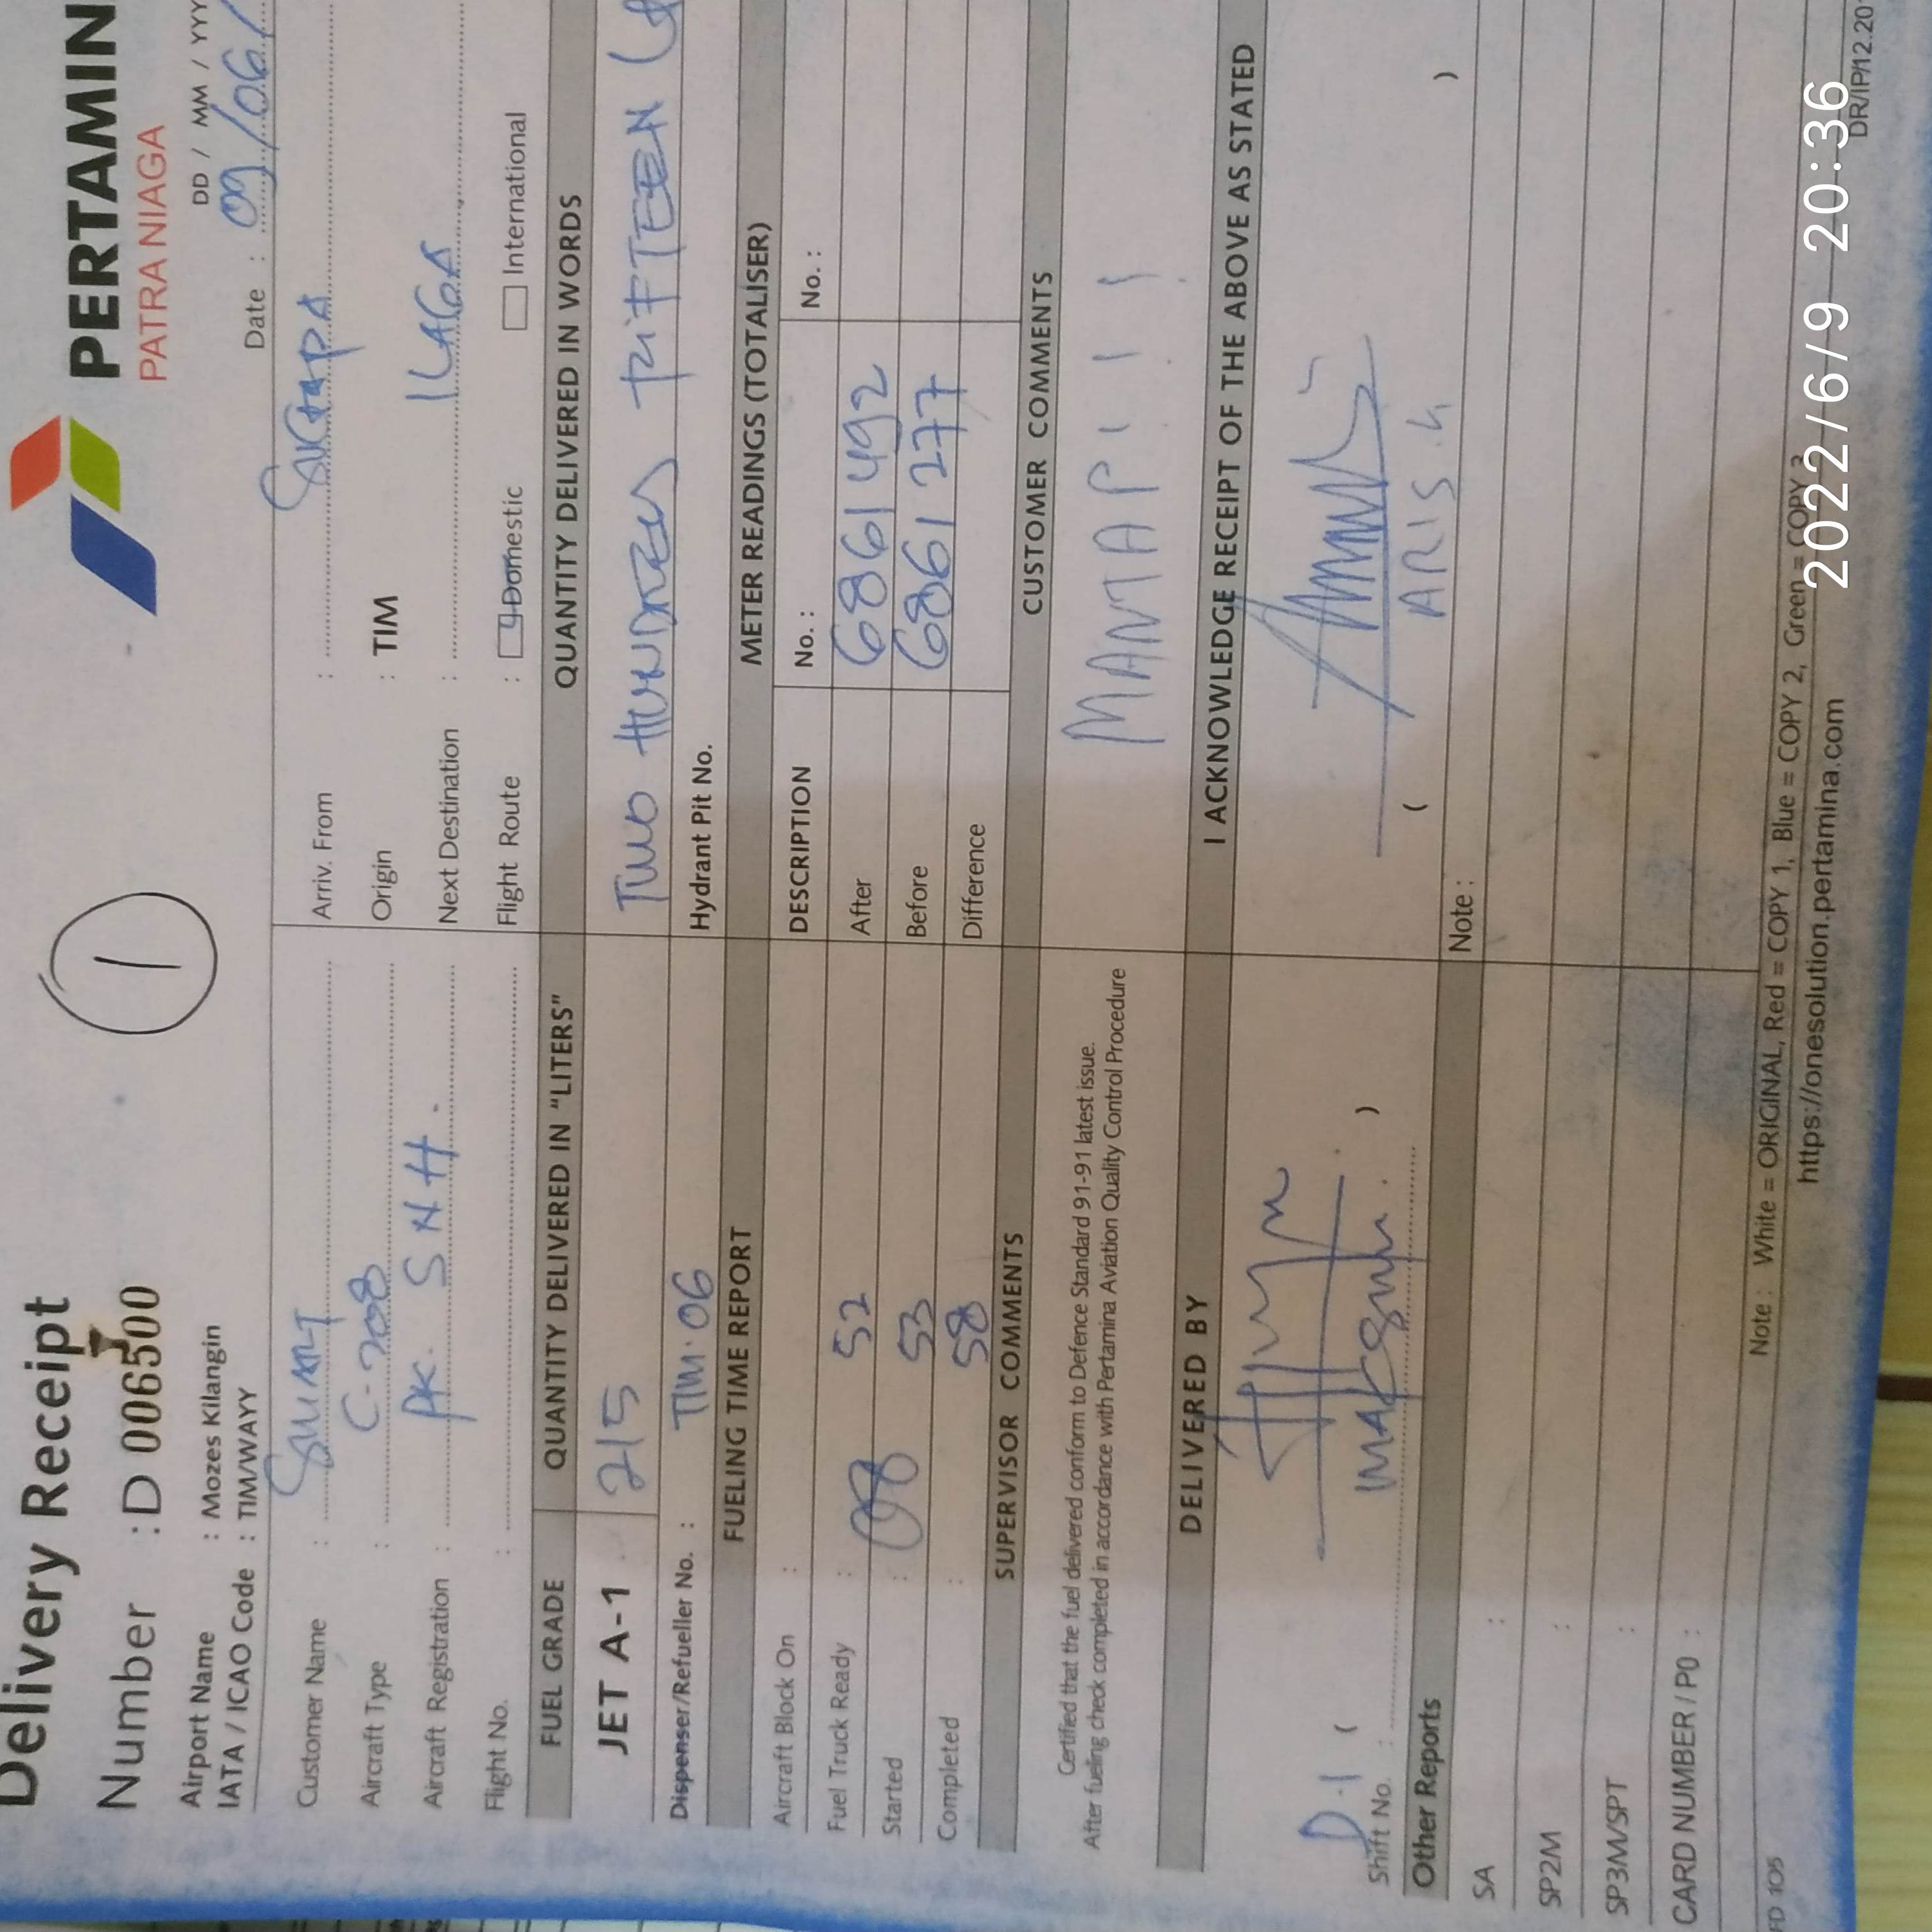 Delivery Receipt
PERTAMIN
PATRA NIAGA
1
Number : D 006500
DD / MM / YYY
Date : 09/06/
Airport Name : Mozes Kilangin
IATA / ICAO Code : TIM/WAYY
Customer Name :
Arriv. From :
Aircraft Type : C-208
Origin : TIM
Aircraft Registration : PK. SNH.
Next Destination : ILAGA
Flight No. :
Flight Route : Domestic International
FUEL GRADE
QUANTITY DELIVERED IN "LITERS"
QUANTITY DELIVERED IN WORDS
JET A-1
215
TWO HUNDRED FIFTEEN
Dispenser/Refueller No. : TIM.06
Hydrant Pit No.
FUELING TIME REPORT
METER READINGS (TOTALISER)
Aircraft Block On :
DESCRIPTION No. : No. :
Fuel Truck Ready : 52
After 6861492
Started : 08 53
Before 6861277
Completed : 58
Difference
SUPERVISOR COMMENTS
CUSTOMER COMMENTS
Certified that the fuel delivered conform to Defence Standard 91-91 latest issue.
After fueling check completed in accordance with Pertamina Aviation Quality Control Procedure
MANTAP!!!
DELIVERED BY
I ACKNOWLEDGE RECEIPT OF THE ABOVE AS STATED
D.1
Shift No. :
( )
( ARIS. )
Other Reports
Note :
SA :
SP2M :
SP3M/SPT :
CARD NUMBER / PO :
FD 105
Note : White = ORIGINAL, Red = COPY 1, Blue = COPY 2, Green = COPY 3
https://onesolution.pertamina.com
DR/IP/12.20
2022/6/9 20:36